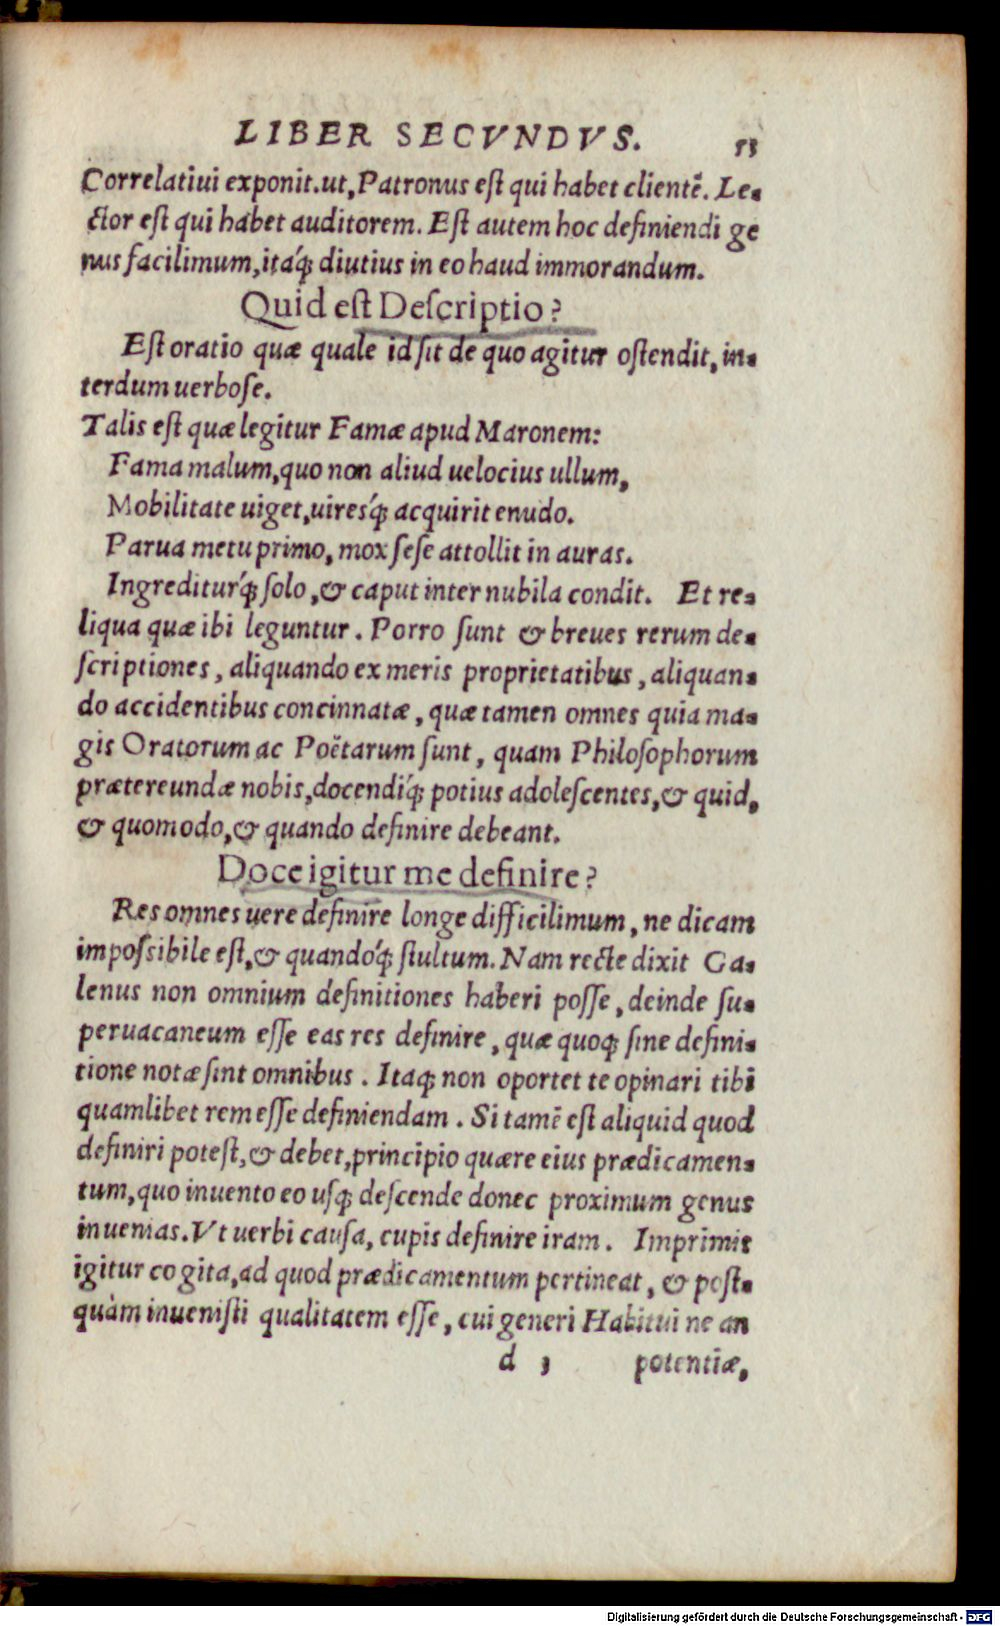 LIBER SECVNDVS. 53
Correlatiui exponit.ut, Patronus eſt qui habet clientē. Le-
ctor eſt qui habet auditorem. Eſt autem hoc definiendi ge
nus facilimum, itaq́ꝫ diutius in eo haud immorandum.
Quid eſt Deſcriptio?
Eſt oratio quæ quale id ſit de quo agitur oſtendit, in-
terdum uerboſe.
Talis eſt quæ legitur Famæ apud Maronem:
Fama malum, quo non aliud uelocius ullum,
Mobilitate uiget, uiresq́ꝫ acquirit eundo.
Parua metu primo, mox ſeſe attollit in auras.
Ingrediturq́ꝫ ſolo, & caput inter nubila condit. Et re-
liqua quæ ibi leguntur. Porro ſunt & breues rerum de-
ſcriptiones, aliquando ex meris proprietatibus, aliquan-
do accidentibus concinnatæ, quæ tamen omnes quia ma-
gis Oratorum ac Poëtarum ſunt, quam Philoſophorum
prætereundæ nobis, docendiq́ꝫ potius adoleſcentes, & quid,
& quomodo, & quando definire debeant.
Doce igitur me definire?
Res omnes uere definire longe difficilimum, ne dicam
impoſsibile eſt, & quandoq́ꝫ ſtultum. Nam recte dixit Ga-
lenus non omnium definitiones haberi poſſe, deinde ſu-
peruacaneum eſſe eas res definire, quæ quoqꝫ ſine defini-
tione notæ ſint omnibus. Itaqꝫ non oportet te opinari tibi
quamlibet rem eſſe definiendam. Si tamē eſt aliquid quod
definiri poteſt, & debet, principio quære eius prædicamen-
tum, quo inuento eo uſqꝫ deſcende donec proximum genus
inuenias. Vt uerbi cauſa, cupis definire iram. Imprimis
igitur cogita, ad quod prædicamentum pertineat, & poſt-
quàm inueniſti qualitatem eſſe, cui generi Habitui ne an
d 3 potentiæ,
Digitalisierung gefördert durch die Deutsche Forschungsgemeinschaft - DFG